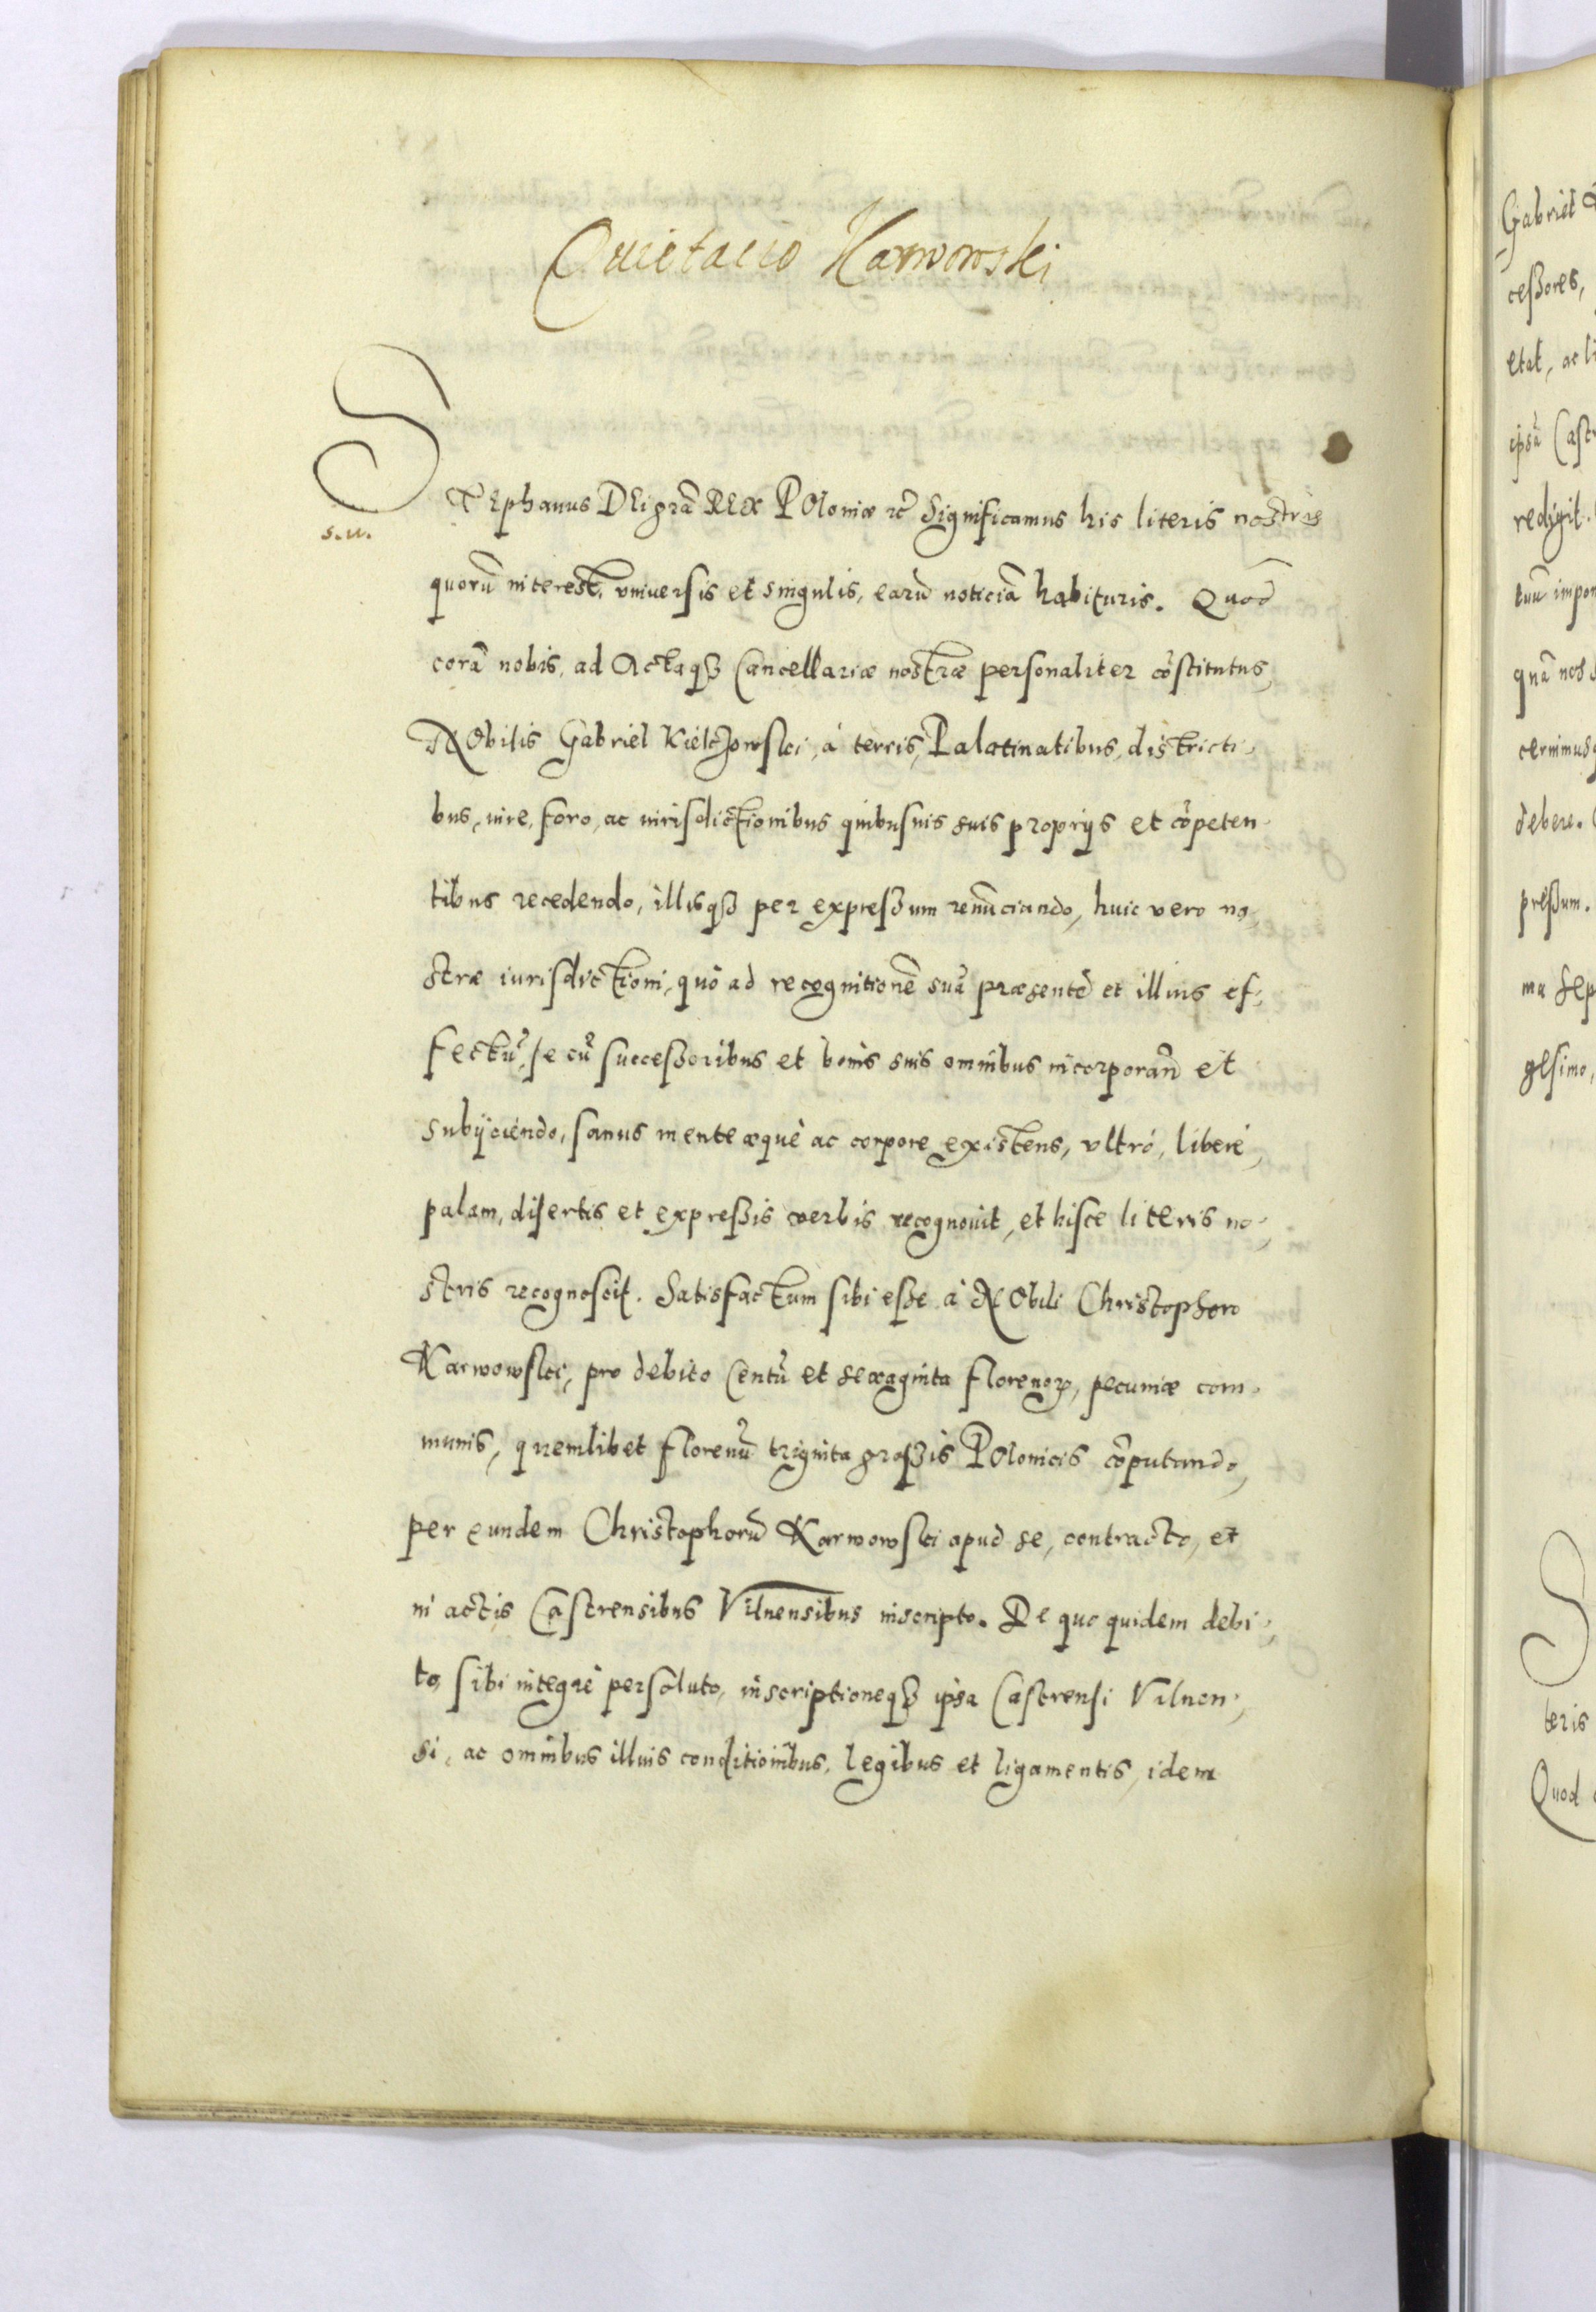 Quietacio Karwowski
STephanus DEi grã REX POloniæ rc̃ Significamus his literis nostris
s. u.
quorũ interest, vniuersis et singulis, earũ noticiã habituris. Quod
corã nobis, ad Actaqȝ Cancellariæ nostræ personaliter cõstitutus,
NObilis Gabriel Kielczowski, à terris, Palatinatibus, districti-
bus, iure, foro, ac iurisdictionibus quibusuis suis proprijs et cõpeten-
tibus recedendo, illisqȝ per expreßum renũciando, huic vero no-
stræ iurisdictioni, quò ad recognitionẽ suã præsentẽ et illius ef-
fectũ, se cũ succeßoribus et bonis suis omnibus incorporañ et
subijciendo, sanus mente æquè ac corpore existens, vltrò, liberè,
palam, disertis et expreßis verbis recognouit, et hisce literis no-
stris recognoscit. Satisfactum sibi eße à NObili Christophoro
Karwowski, pro debito Centũ et sexaginta florenoꝝ, pecuniæ com-
munis, quemlibet florenũ triginta großis POlonicis cõputando,
per eundem Christophorũ Karwowski apud se, contracto, et
in actis Castrensibus Vilnensibus inscripto. De quo quidem debi-
to, sibi integrè persoluto, inscriptioneqȝ ipsa Castrensi Vilnen-
si, ac omnibus illius conditionibus, legibus et ligamentis, idem
Gabriel
ceßores,
etat, ac li
ipsã Castr
redigit.
tuũ impon
quã nos
cernimus
debere.
preßum.
ma Sep
gesimo,
S
teris
Quod